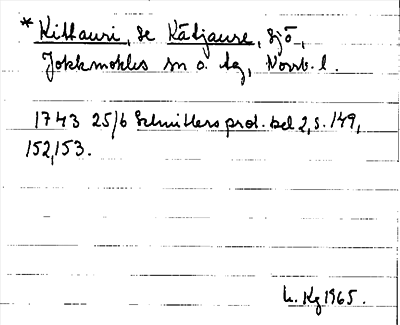 * Kittauri, se Kådjaure, sjö,
Jokkmokks sn o. tg, Norrb. l.
1743 25/6 Schnitlers prot. bd 2, s. 149,
152, 153.
L. Kg 1965.